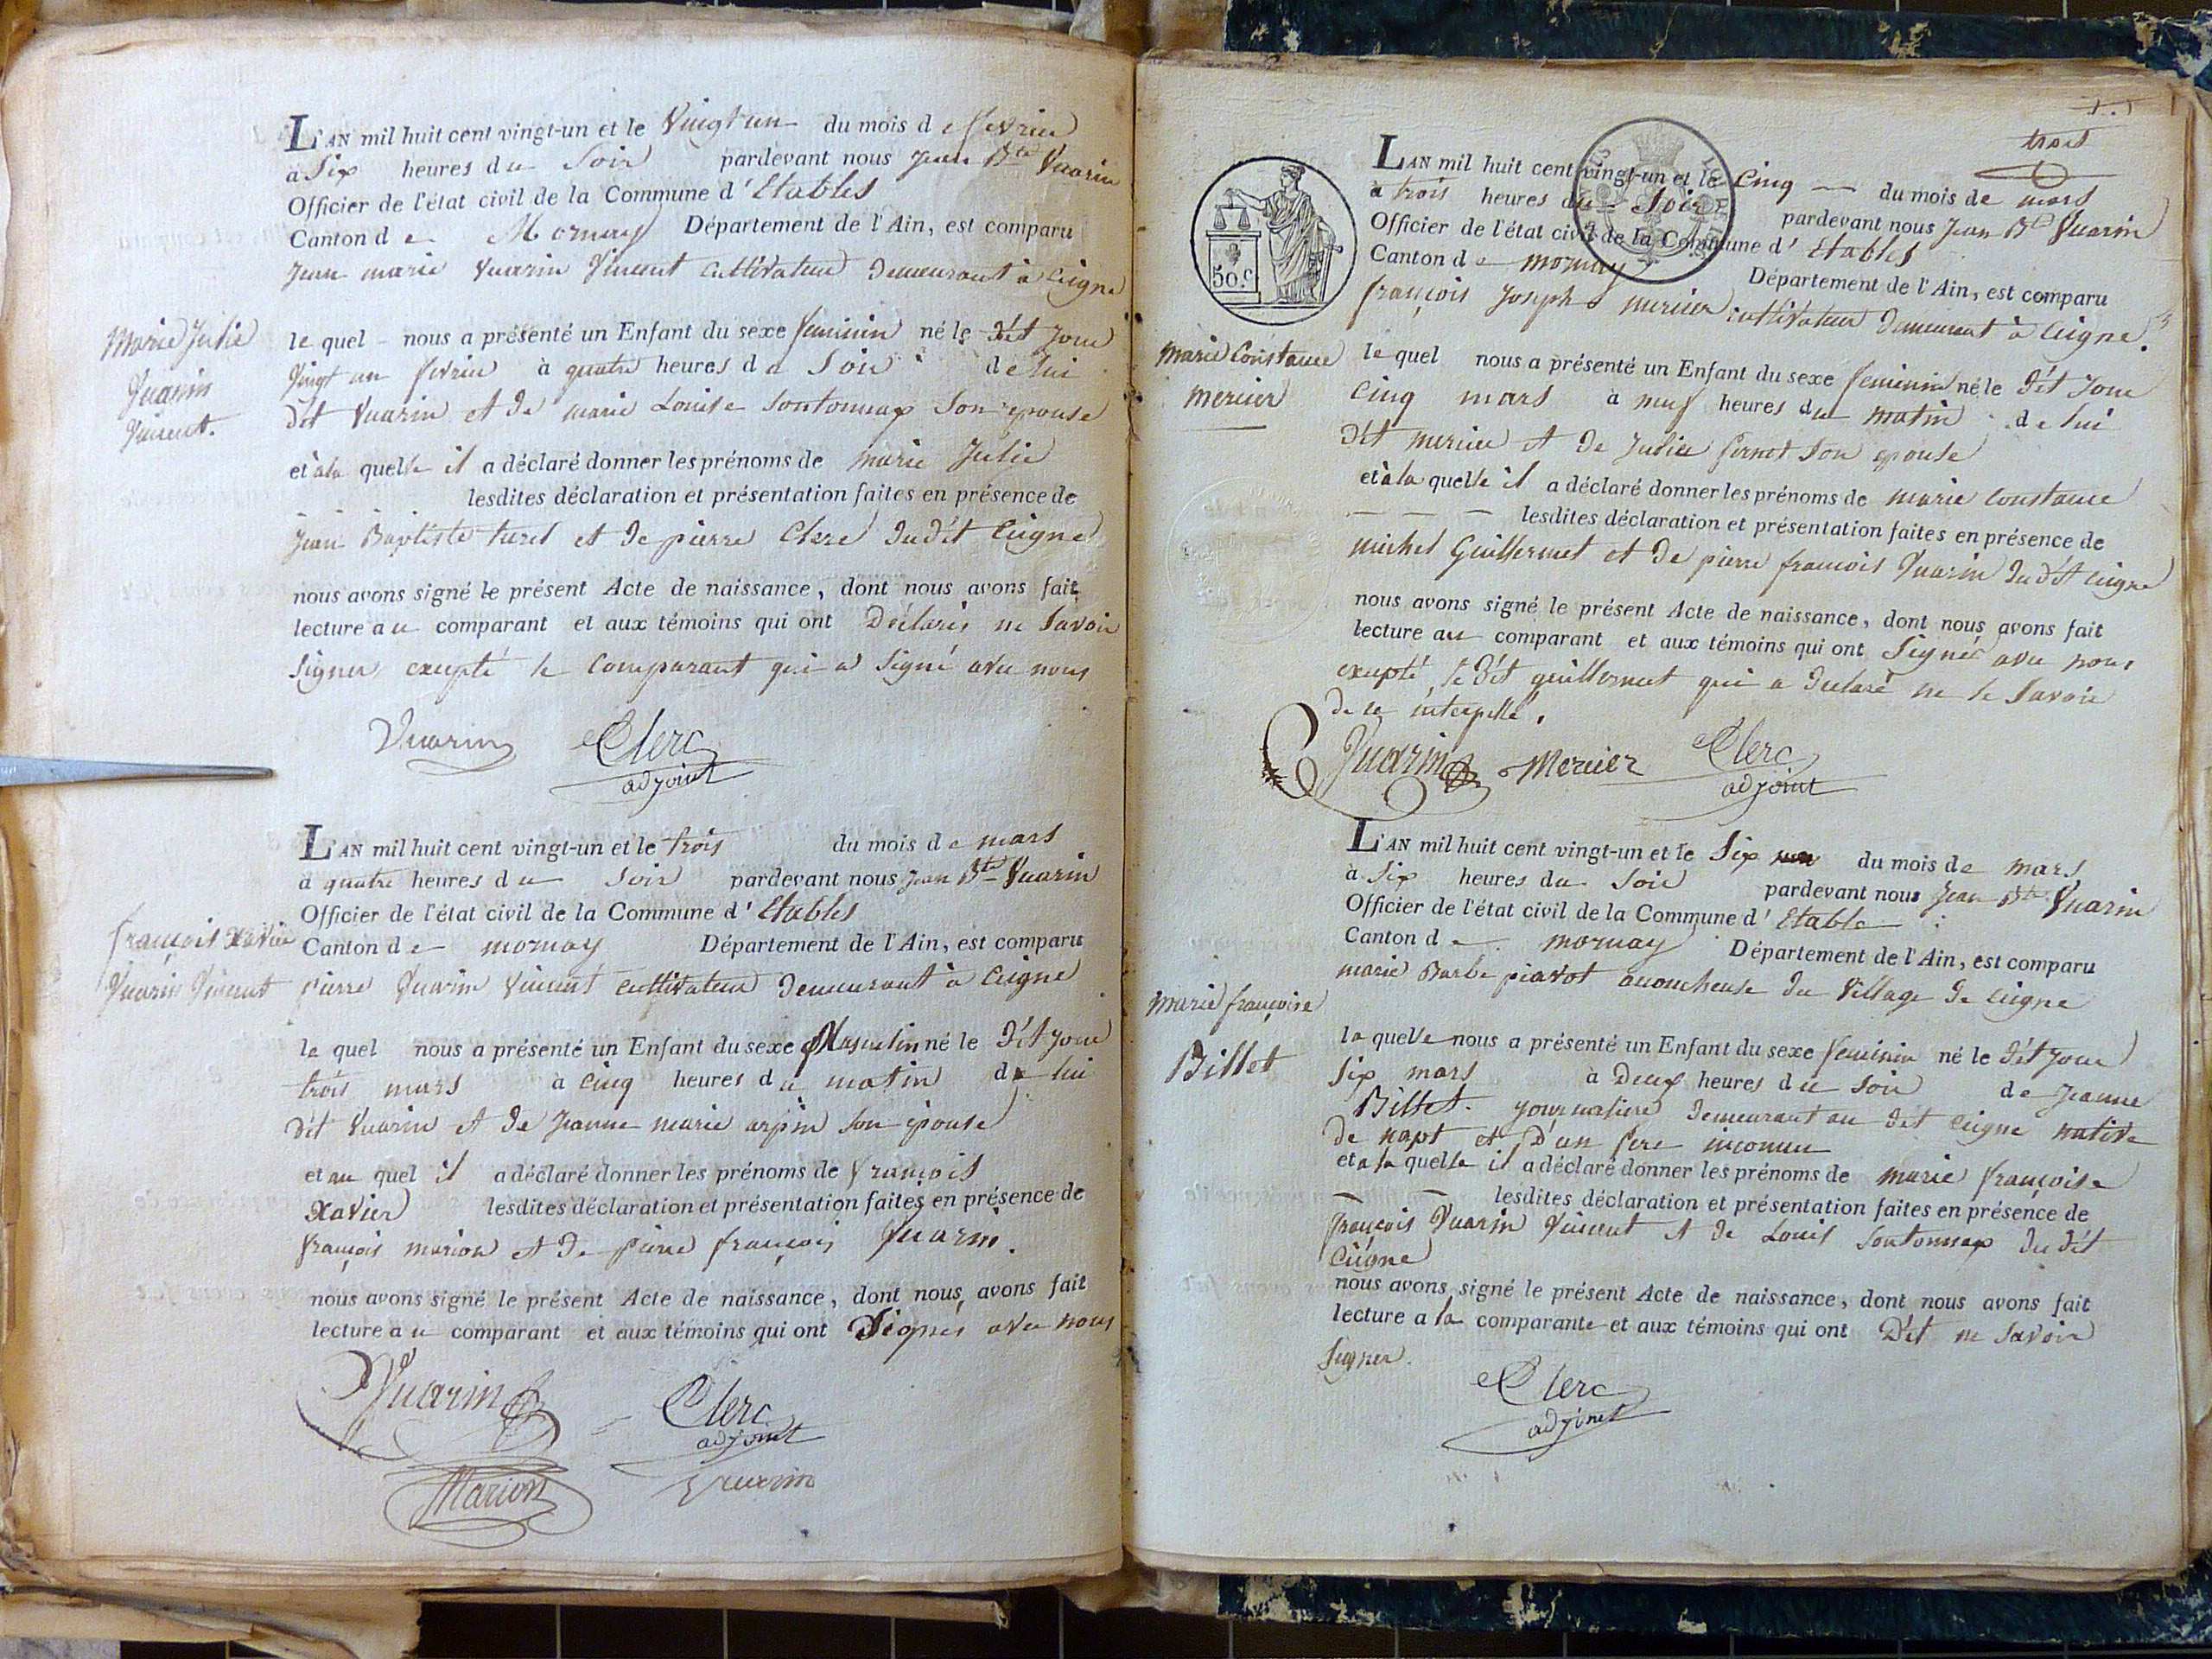 L'AN mil huit cent vingt-un et le Vingt un du mois de fevrier
à Six heures du Soir pardevant nous Jean Bte Vuarin
Officier de l'état civil de la Commune d'Etables
Canton de Mornay Département de l'Ain, est comparu
Jean marie Vuarin Vincent Cultivateur demeurant à Ceigne
Marie Julie
Vuarin
Vincent.
le quel nous a présenté un Enfant du sexe feminin né le dit Jour
Vingt un fevrier à quatre heures du Soir de lui
dit Vuarin et de marie Louise Sontonnax Son epouse
et à la quelle il a déclaré donner les prénoms de marie Julie
lesdites déclaration et présentation faites en présence de
Jean Baptiste turel et de pierre Clerc dudit Ceigne
nous avons signé le présent Acte de naissance, dont nous avons fait
lecture au comparant et aux témoins qui ont Déclarés ne Savoir
Signer excepté le Comparant qui a Signé avec nous
Vuarin Clerc
adjoint
L'AN mil huit cent vingt-un et le trois du mois de mars
à quatre heures du Soir pardevant nous Jean Bte Vuarin
Officier de l'état civil de la Commune d'Etables
Canton de mornay Département de l'Ain, est comparu
françois Xavier
Vuarin Vincent
pierre Vuarin Vincent Cultivateur demeurant à Ceigne
le quel nous a présenté un Enfant du sexe Masculin né le dit Jour
trois mars à Cinq heures du matin de lui
dit Vuarin et de Jeanne marie arpin son epouse
et au quel il a déclaré donner les prénoms de françois
Xavier lesdites déclaration et présentation faites en présence de
françois marion et de pierre françois Vuarin.
nous avons signé le présent Acte de naissance, dont nous avons fait
lecture au comparant et aux témoins qui ont Signés avec nous
Vuarin Clerc
adjoint
Marion Vuarin
trois
50.C
L'AN mil huit cent vingt-un et le Cinq du mois de mars
à trois heures du Soir pardevant nous Jean Bte Vuarin
Officier de l'état civil de la Commune d'Etables
Canton de mornay Département de l'Ain, est comparu
françois Joseph mercier cultivateur demeurant à Ceigne.
marie Constance
mercier
le quel nous a présenté un Enfant du sexe feminin né le dit Jour
Cinq mars à neuf heures du matin de lui
dit mercier et de Judice fernet Son epouse
et à la quelle il a déclaré donner les prénoms de marie Constance
lesdites déclaration et présentation faites en présence de
michel Guillermet et de pierre françois Vuarin dudit Ceigne
nous avons signé le présent Acte de naissance, dont nous avons fait
lecture au comparant et aux témoins qui ont Signés avec nous
excepté le dit guillermet qui a declaré ne le Savoir
de ce interpellé.
Vuarin Mercier Clerc
adjoint
L'AN mil huit cent vingt-un et le Six du mois de mars
à Six heures du Soir pardevant nous Jean Bte Vuarin
Officier de l'état civil de la Commune d'Etable
Canton de mornay Département de l'Ain, est comparu
marie Barbe piavot acoucheuse du Village de Ceigne
marie françoise
Billet
la quelle nous a présenté un Enfant du sexe feminin né le dit Jour
Six mars à Deux heures du Soir de Jeanne
Billet. journaliere demeurant au dit Ceigne native
de napt et D'un Pere inconnu
et à la quelle il a déclaré donner les prénoms de marie françoise
lesdites déclaration et présentation faites en présence de
françois Vuarin Vincent et de Louis Sontonnax du dit
Ceigne
nous avons signé le présent Acte de naissance, dont nous avons fait
lecture a la comparante et aux témoins qui ont Dit ne Savoir
Signer.
Clerc
adjoint